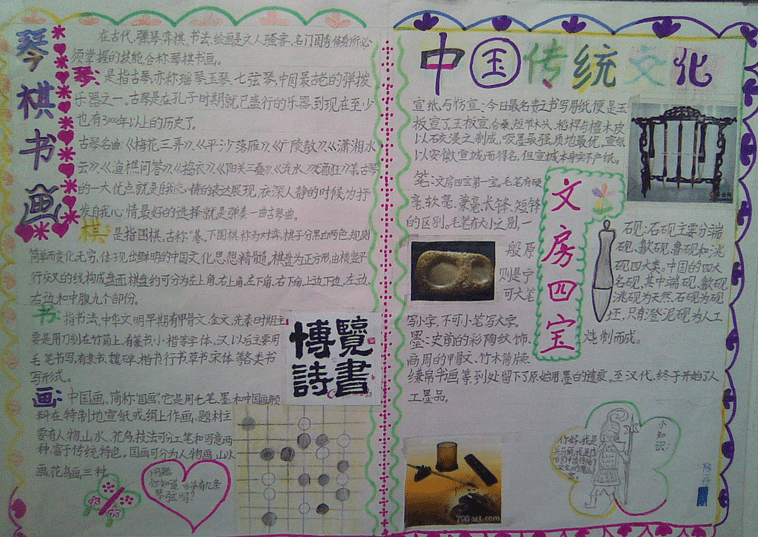 琴棋书画
在古代,弹琴弈棋、书法、绘画是文人骚客、名门闺秀修身所必
须掌握的技能合称琴棋书画。
琴:是指古琴,亦称瑶琴、玉琴、七弦琴,中国最古老的弹拨
乐器之一,古琴是在孔子时期就已盛行的乐器,到现在至少
也有3000年以上的历史了。
古琴名曲《梅花三弄》《平沙落雁》《广陵散》《潇湘水
云》《渔樵问答》《捣衣》《阳关三叠》《流水》《酒狂》古琴
的一大优态就是自我心情的表达展现,夜深人静的时候,为抒
发自我心情最好的选择就是弹奏一曲古琴曲。
棋:是指围棋,古称"弈",下围棋称为对弈,棋子分黑白两色,规则
简单而变化无穷,体现出鲜明的中国文化思想精髓,棋盘为正方形,由横竖平
行交叉的线构成盘面,棋盘约可分为左上角、右上角、左下角、右下角、上边、下边、左边、
右边和中腹九个部份。
书:指书法,中华文明早期有甲骨文、金文,先秦时期主
要是用刀刻在竹简上,有篆书,小楷等字体,又以后主要用
毛笔书写,有隶书、魏碑、楷书行书草书宋体等各类书
写形式。
画:中国画,简称"国画",它是用毛笔、墨和中国画颜
料在特制地宣纸或绢上作画,题材主
要有人物、山水、花鸟,技法可分工笔和写意两
种,富于传统特色,国画可分为人物画、山水
画、花鸟画三种。
博覽
詩書
问题
你知道古琴有几条
琴弦吗?
中国传统文化
宣纸与仿宣:今日最名贵之书写用纸便是玉
板宣了,玉板宣合桑、短节木头、稻杆与檀木皮
以石灰浸之制成,吸墨最强,质地最优,宣纸
以安徽宣城而得名,但宣城本身亦不产纸。
笔:文房四宝第一宝,毛笔有硬
毫、软毫、兼毫、长锋、短锋
的区别。毛笔有大小之别,一
般原
则是宁
可大笔
写小字,不可小笔写大字。
文房四宝
砚:石砚主要分端
砚、歙砚、鲁砚和洮
砚四大类,中国的四大
名砚,其中端砚、歙砚
洮砚为天然石砚为砚
坯,只有澄泥砚为人工
炼制而成。
墨:史前的彩陶纹饰、
商周的甲骨文、竹木简牍、
缣帛书画等到处留下了原始用墨的遗痕。至汉代,终于开始了人
工墨品。
706art.com
小知识: